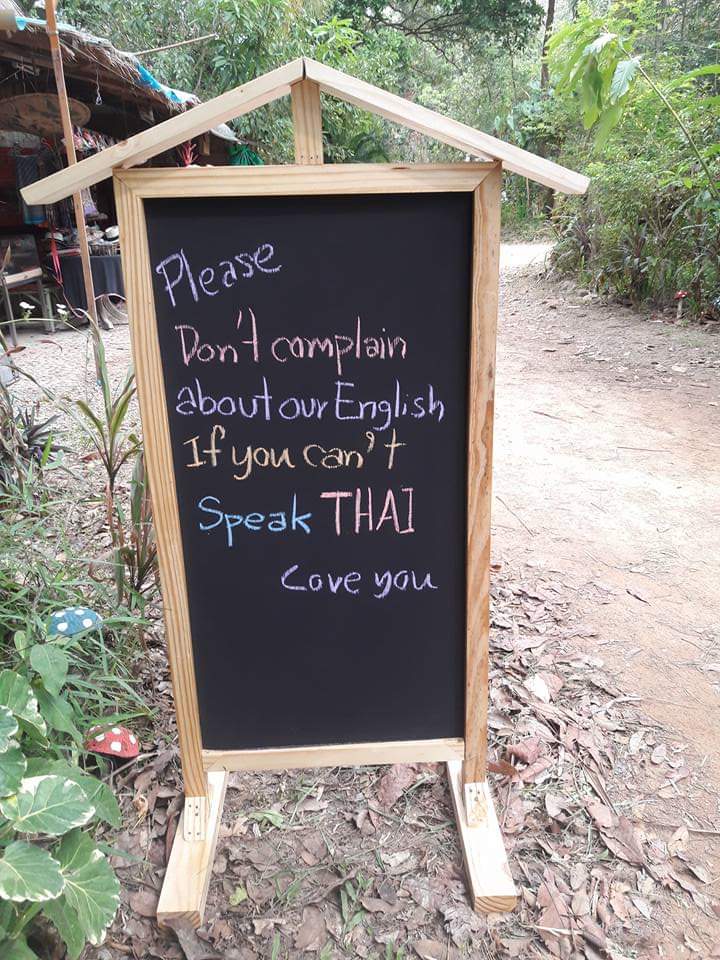 Please
Don't complain
about our English
If you can't
Speak THAI
Love you